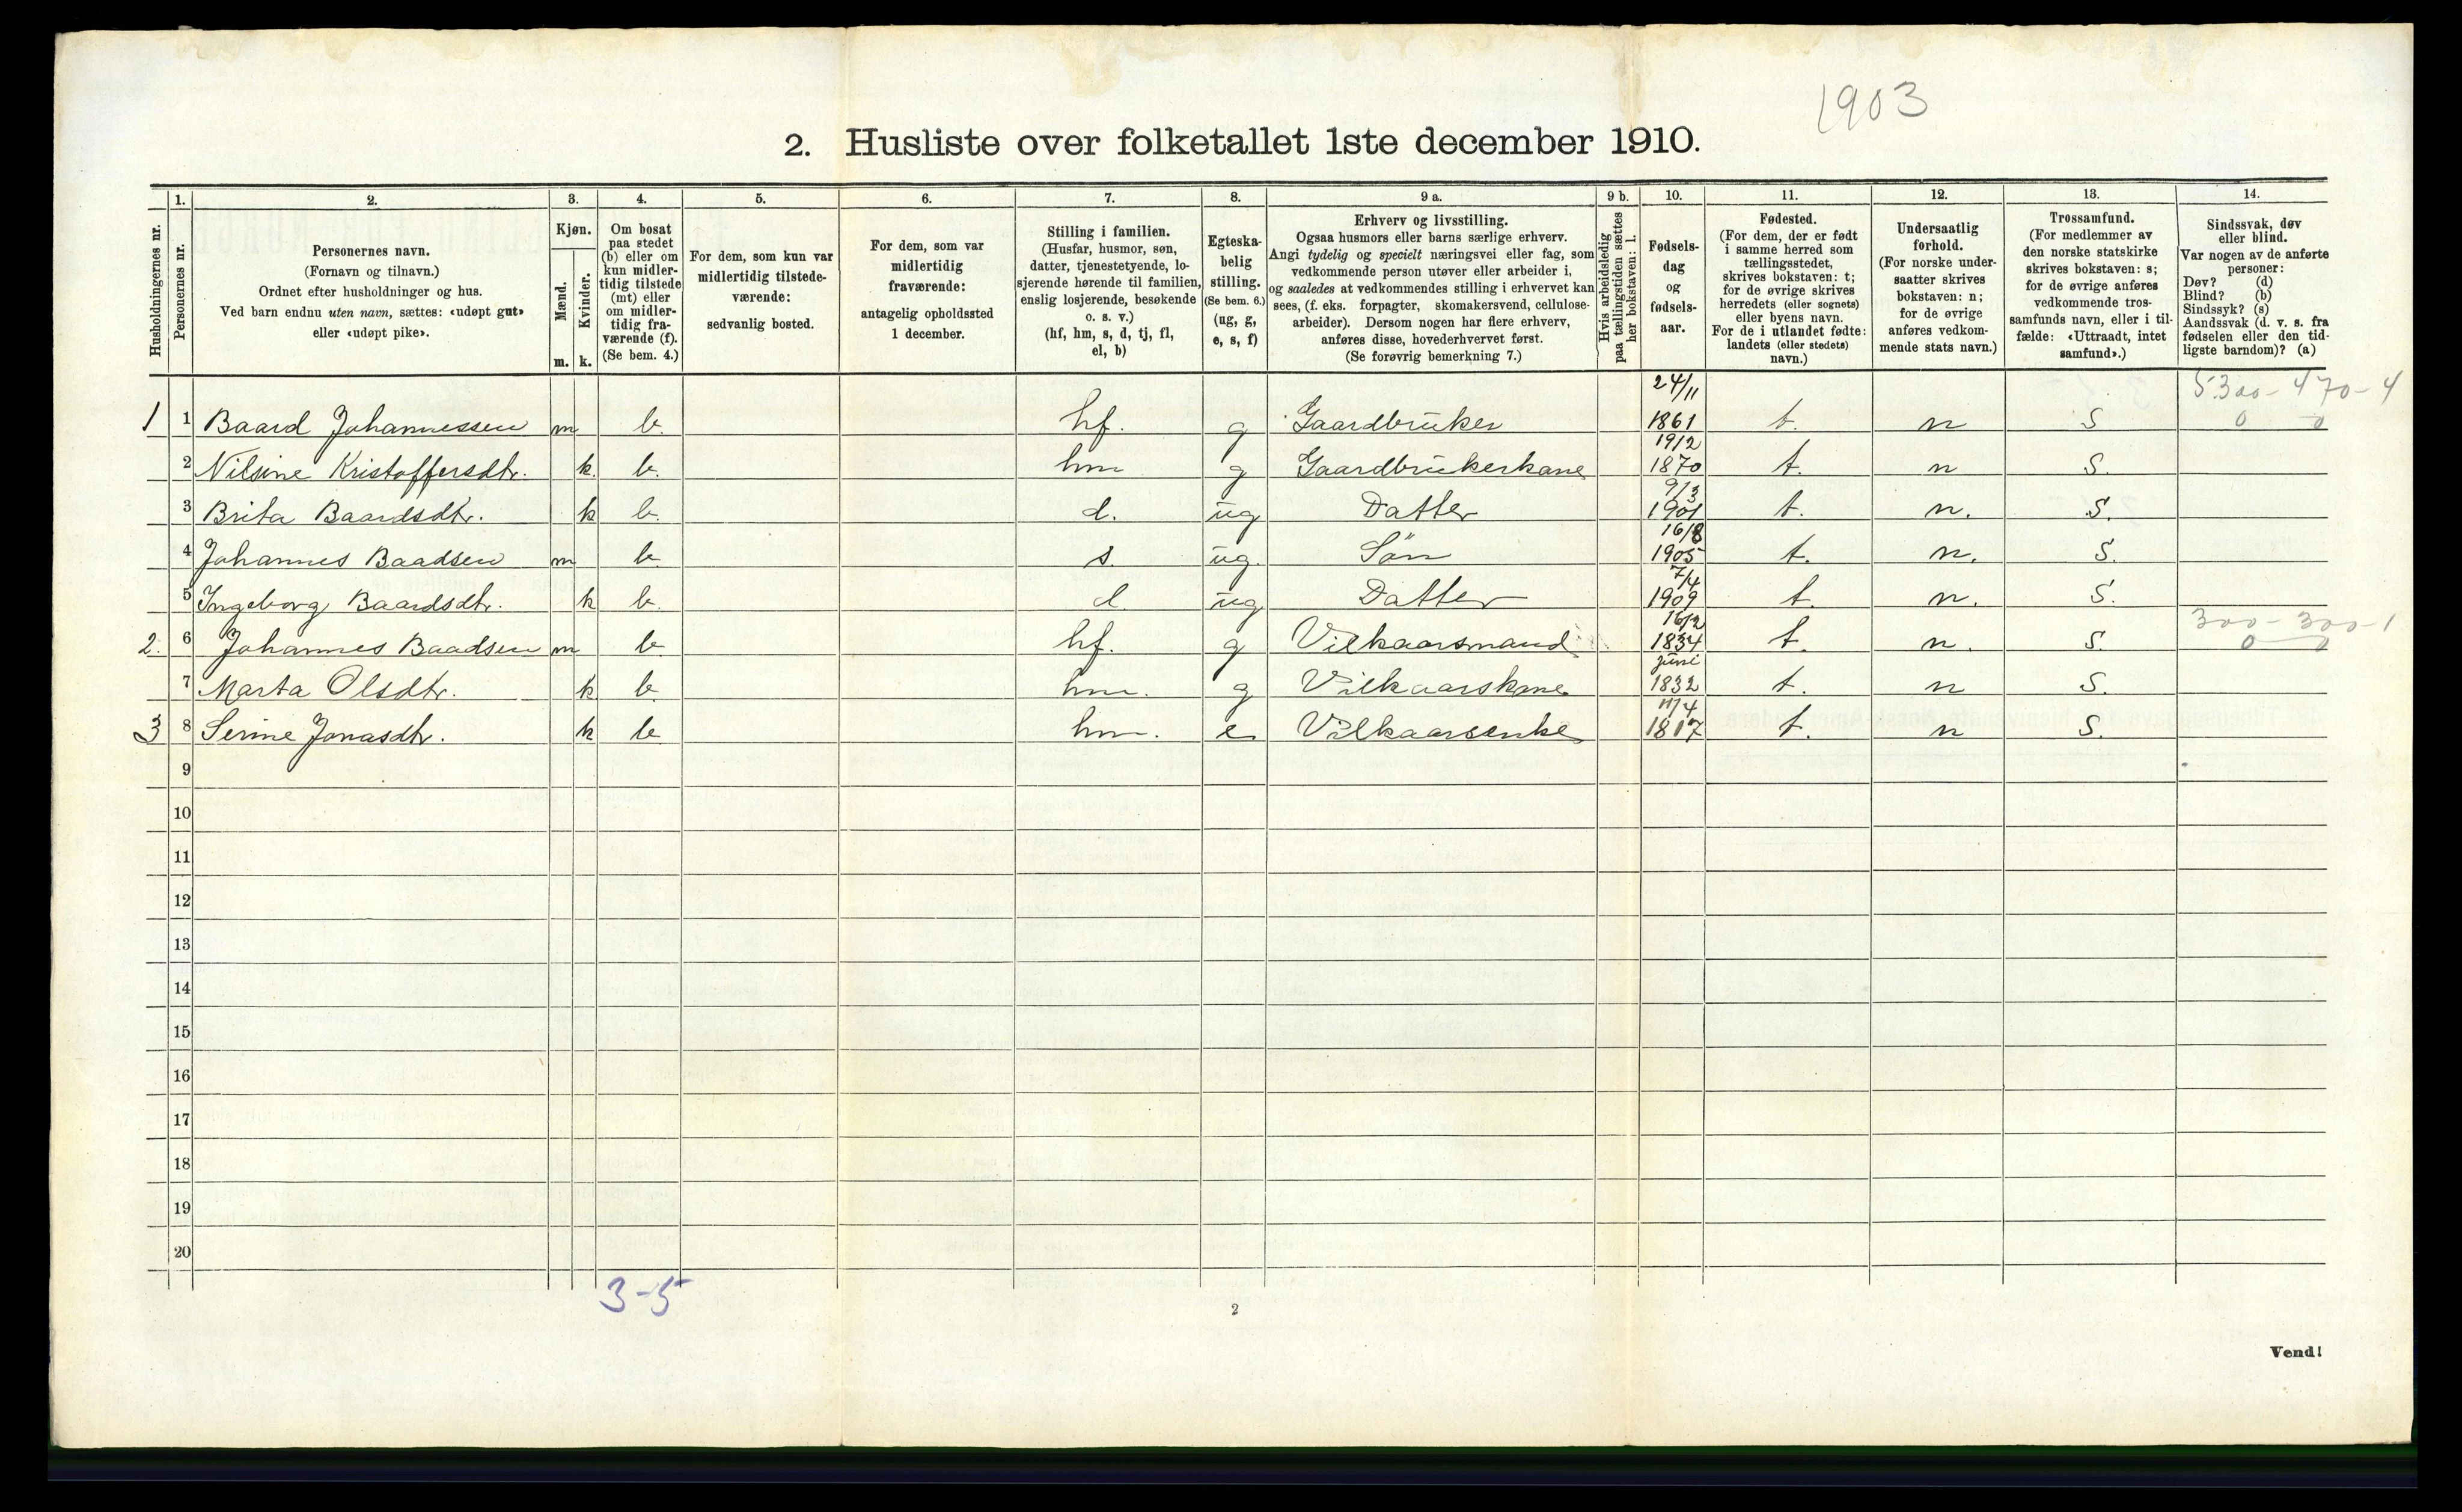 1903
2. Husliste over folketallet 1ste december 1910.
Husholdningernes nr.
1. Personernes nr.
2. Personernes navn.
(Fornavn og tilnavn.)
Ordnet efter husholdninger og hus.
Ved barn endnu uten navn, sættes: «udøpt gut»
eller «udøpt pike».
3. Kjøn.
Mænd. m.
Kvinder. k.
4. Om bosat
paa stedet
(b) eller om
kun midler-
tidig tilstede
(mt) eller
om midler-
tidig fra-
værende (f).
(Se bem. 4.)
5. For dem, som kun var
midlertidig tilstede-
værende:
sedvanlig bosted.
6. For dem, som var
midlertidig
fraværende:
antagelig opholdssted
1 december.
7. Stilling i familien.
(Husfar, husmor, søn,
datter, tjenestetyende, lo-
sjerende hørende til familien,
enslig losjerende, besøkende
o. s. v.)
(hf, hm, s, d, tj, fl,
el, b)
8. Egteska-
belig
stilling.
(Se bem. 6.)
(ug, g,
e, s, f)
9 a. Erhverv og livsstilling.
Ogsaa husmors eller barns særlige erhverv.
Angi tydelig og specielt næringsvei eller fag, som
vedkommende person utøver eller arbeider i,
og saaledes at vedkommendes stilling i erhvervet kan
sees, (f. eks. forpagter, skomakersvend, cellulose-
arbeider). Dersom nogen har flere erhverv,
anføres disse, hovederhvervet først.
(Se forøvrig bemerkning 7.)
9 b. Hvis arbeidsledig
paa tællingstiden sættes
her bokstaven: l.
10. Fødsels-
dag
og
fødsels-
aar.
11. Fødested.
(For dem, der er født
i samme herred som
tællingsstedet,
skrives bokstaven: t;
for de øvrige skrives
herredets (eller sognets)
eller byens navn.
For de i utlandet fødte:
landets (eller stedets)
navn.)
12. Undersaatlig
forhold.
(For norske under-
saatter skrives
bokstaven: n;
for de øvrige
anføres vedkom-
mende stats navn.)
13. Trossamfund.
(For medlemmer av
den norske statskirke
skrives bokstaven: s;
for de øvrige anføres
vedkommende tros-
samfunds navn, eller i til-
fælde: «Uttraadt, intet
samfund».)
14. Sindssvak, døv
eller blind.
Var nogen av de anførte
personer:
Døv? (d)
Blind? (b)
Sindssyk? (s)
Aandssvak (d. v. s. fra
fødselen eller den tid-
ligste barndom)? (a)
1 1 Baard Johannessen m b. hf. g Gaardbruker 24/11 1861 t. n S 5300-470-4 0 0
2 Nilsine Kristoffersdtr. k. b. hm g Gaardbrukerkone 19/2 1870 t. n S.
3 Brita Baardsdtr. k b. d. ug Datter 9/3 1901 t. n. S.
4 Johannes Baadsen m b s. ug. Sön 16/8 1905 t. n. S.
5 Ingeborg Baardsdtr. k b. d. ug Datter 7/4 1909 t. n. S.
2. 6 Johannes Baadsen m b hf. g Vilkaarsmand 16/2 1834 t. n. S. 300-300-1 0 0
7 Marta Olsdtr. k b hm. g Vilkaarskone juni 1832 t. n S.
3 8 Serine Jonasdtr. k b hm. e Vilkaarsenke 11/4 1817 t. n S.
9
10
11
12
13
14
15
16
17
18
19
20
3-5
2
Vend!